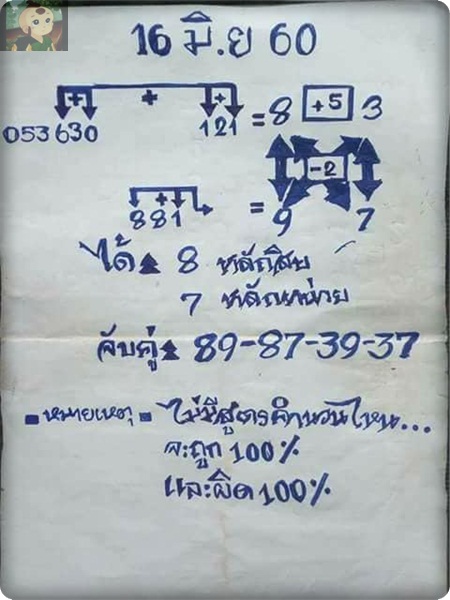 16 มิ.ย 60
+ + +
053630 121 = 8 +5 3
-2
+
881 = 9 7
ได้ 8 หลักสิบ
7 หลักหน่วย
จับคู่ 89-87-39-37
หมายเหตุ ไม่มีสูตรคำนวนไหน...
จะถูก 100%
และผิด 100%